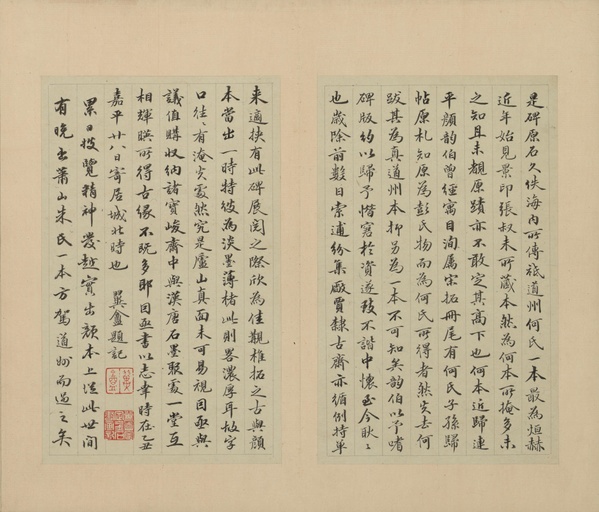 是碑原石久佚海內所傳祗道州何氏一本最為烜赫
近年始見景印張叔未所藏本然為何本所掩多未
之知且未覩原蹟亦不敢定其高下也何本近歸連
平顏韵伯曾經寓目洵屬宋拓冊尾有何氏子孫歸
帖原札知原為彭氏物而為何氏所得者然矣去何
跋其為真道州本抑另為一本不可知矣韵伯以予嗜
碑版約以歸予惜窘於資遂致不諧中懷至今耿耿
也歲除前數日索逋紛集廠賈隸古齋亦循例持單
來適挾有此碑展閱之際欣為佳觀椎拓之古與顏
本當出一時特彼為淡墨薄楮此則畧濃厚耳故字
口往往有淹失處然究是廬山真面未可易視因亟與
議值購收納諸寶峻齋中與漢唐石墨聚處一堂互
相輝暎所得古緣不既多耶因亟書以志幸時在乙丑
嘉平廿八日寄居城北時也 異盦題記
累日披覽精神發越實出顏本上涖此世間
有晚出蕭山朱氏一本方駕道州而過之矣